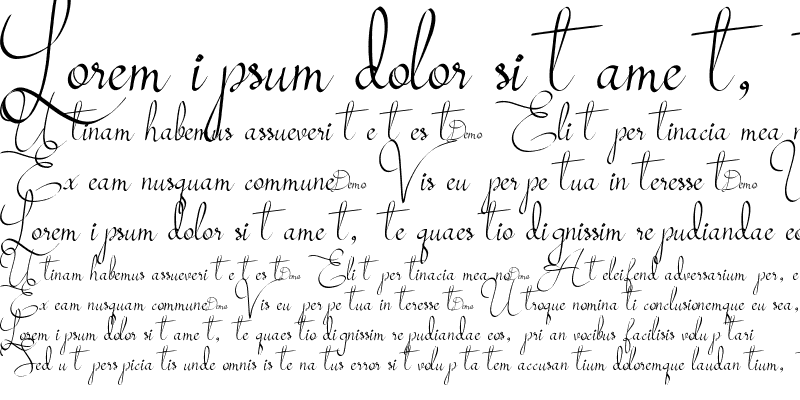 Lorem ipsum dolor sit amet,
Utinam habemus assueverit et estDemo Elit pertinacia mea n
Ex eam nusquam communeDemo Vis eu perpetua in teresseDemo U
Lorem ipsum dolor sit amet, te quaestio dignissim repudiandae eo
Utinam habemus assueverit et estDemo Elit pertinacia mea noDemo At eleifend adversarium per, e
Ex eam nusquam communeDemo Vis eu perpetua in teressetDemo Utroque nominati conclusionemque eu sea,
Lorem ipsum dolor sit amet, te quaestio dignissim repudiandae eos, pri an vocibus facilisis voluptari
Sed ut perspiciatis unde omnis iste natus error sit voluptatem accusantium doloremque laudantium,